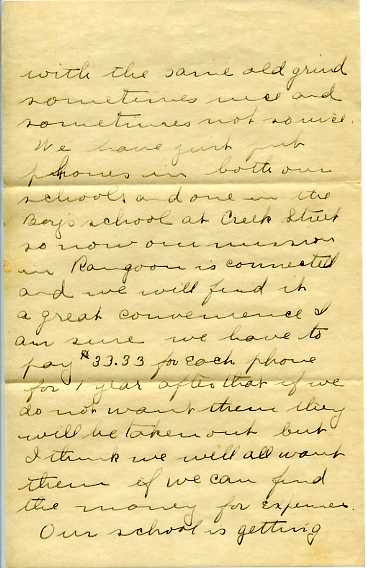 with the same old grind
sometimes nice and
sometimes not so nice.
We have just put
phones in both our
schools and one in the
Boys school at Creek Street
so now our mission
in Rangoon is connected
and we will find it
a great convenience I
am sure we have to
pay $33.33 for each phone
for 1 year after that if we
do not want them they
will be taken out but
I think we will all want
them if we can find
the money for expenses.
Our school is getting